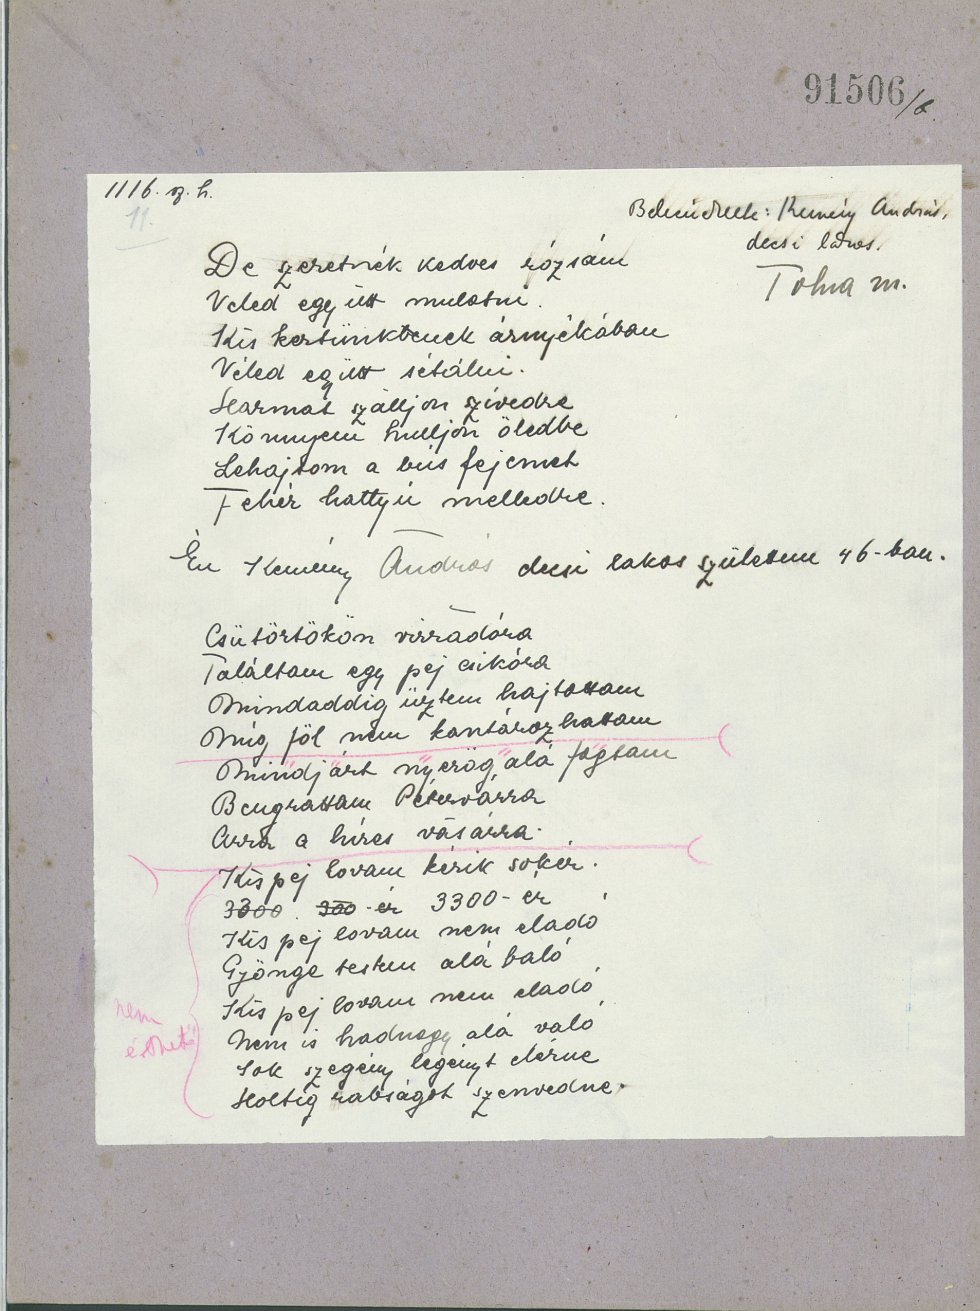 91506/b
1116. sz. h.
11.
Beküldték: Kemény András,
decsi lakos.
Tolna m.
De szeretnék kedves rózsám
Veled együtt mulatni.
Kis kertünkbenek árnyékában
Véled együtt sétálni.
Harmat szálljon szívedre
Könnyem hulljon öledbe
Lehajtom a bús fejemet
Fehér hattyú melledre.
Én Kemény András decsi lakos születtem 46-ban.
Csütörtökön virradóra
Találtam egy pej csikóra
Mindaddig űztem hajtottam
Míg föl nem kantározhattam
Mindjárt nyerög alá fogtam
Beugrattam Pétervárra
Arra a híres vásárra.
Kis pej lovam kérik sokér.
3300. 300-ér 3300-ér
Kis pej lovam nem eladó
Gyönge testem alá baló
Kis pej lovam nem eladó
Nem is hadnagy alá való
Sok szegény legényt elérne
Holtig rabságot szenvedne.
nem
érthető